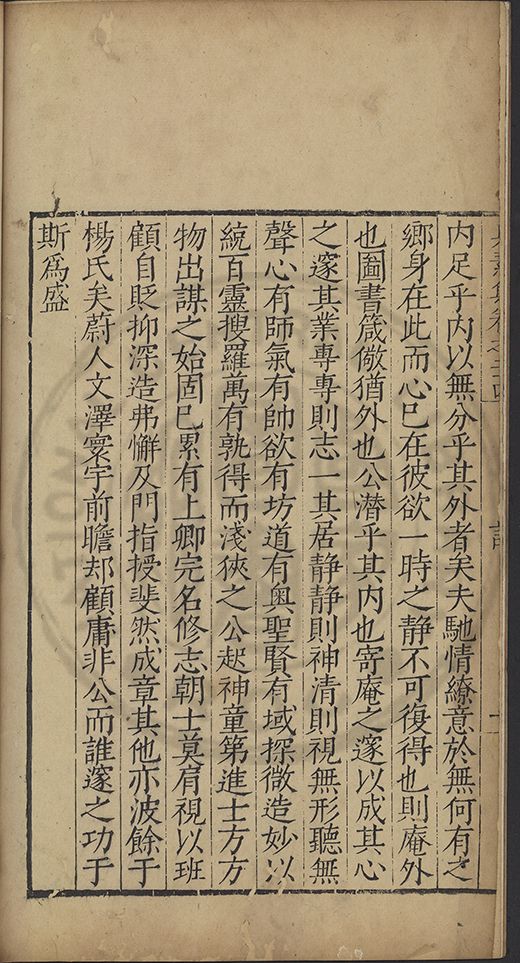 內足乎內以無分乎其外者矣夫馳情繚意於無何有之
鄉身在此而心已在彼欲一時之静不可復得也則庵外
也圖書箴儆猶外也公潜乎其內也寄庵之邃以成其心
之邃其業専専則志一其居静静則神清則視無形聽無
聲心有師氣有帥欲有坊道有奥聖賢有域探微造妙以
統百靈搜羅萬有孰得而淺狹之公起神童第進士方方
物出謀之始固已累有上卿完名修志朝士莫肩視以班
顧自貶抑深造弗懈及門指授斐然成章其他亦波餘于
楊氏矣蔚人文澤寰宇前瞻却顧庸非公而誰邃之功于
斯為盛